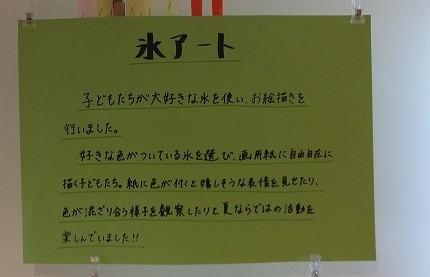 氷アート
子どもたちが大好きな氷を使い、お絵描きを
行いました。
好きな色がついている氷を選び、画用紙に自由自在に
描く子どもたち。紙に色が付くと嬉しそうな表情を見せたり、
色が混ざり合う様子を観察したりと夏ならではの活動を
楽しんでいました!!